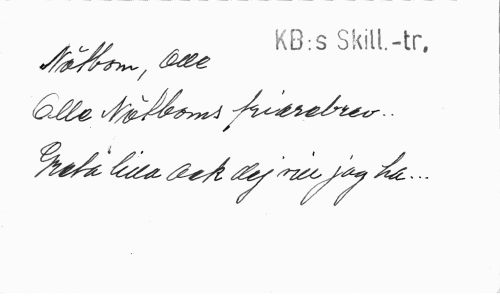 KB:s Skill.-tr.
Nötbom, Olle
Olle Nötboms friarebrev..
Greta lilla ack dej vill jag ha...